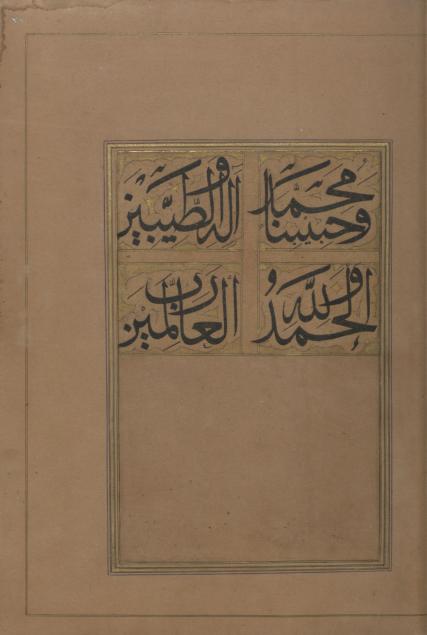 وحبيبنا محمد واله الطيبين
والحمد لله رب العالمين